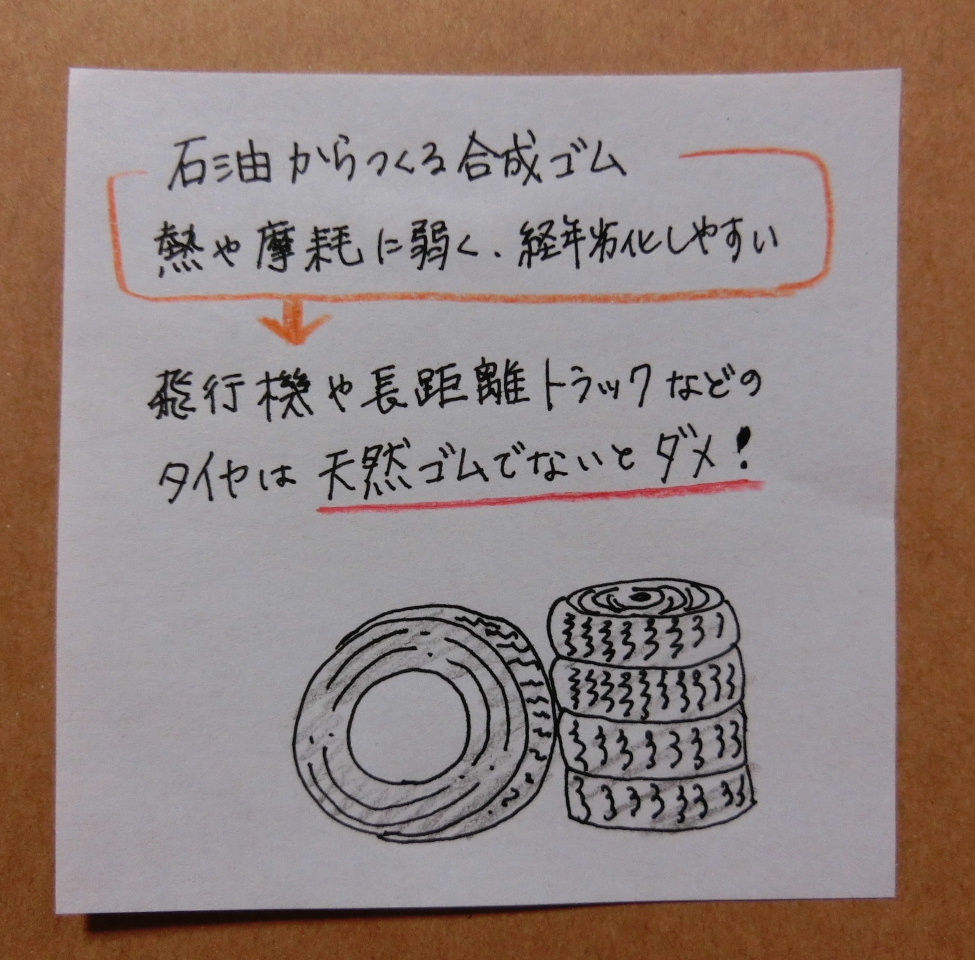 石油からつくる合成ゴム
熱や摩耗に弱く、経年劣化しやすい
飛行機や長距離トラックなどの
タイヤは天然ゴムでないとダメ!